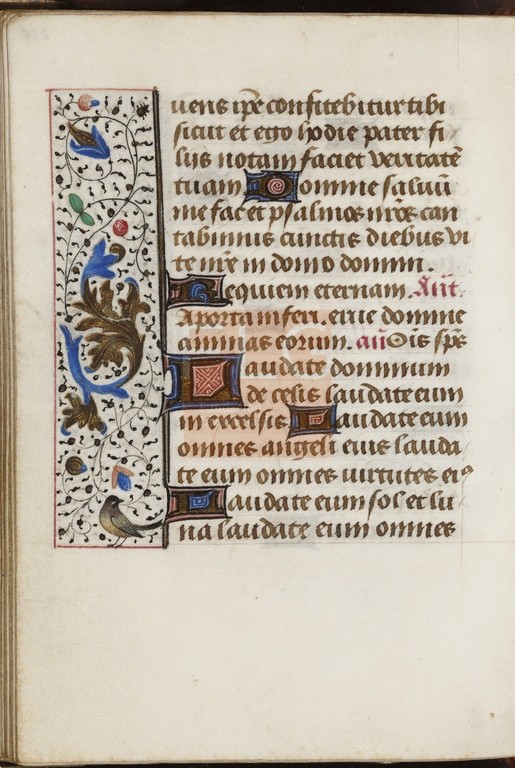 uens ip̄e confitebitur tibi
sicut et ego hodie pater fi
lijs notam faciet veritatē
tuam Domine saluū
me fac et psalmos nr̄os can
tabimus cunctis diebus vi
te nr̄e in domo domini.
Requiem eternam. An̄t
A porta inferi. erue domine
animas eorum. an̄ Oīs sp̄s
Laudate dominum
de celis laudate eum
in excelsis Laudate eum
omnes angeli eius lauda
te eum omnes uirtutes eiꝰ
Laudate eum sol et lu
na laudate eum omnes